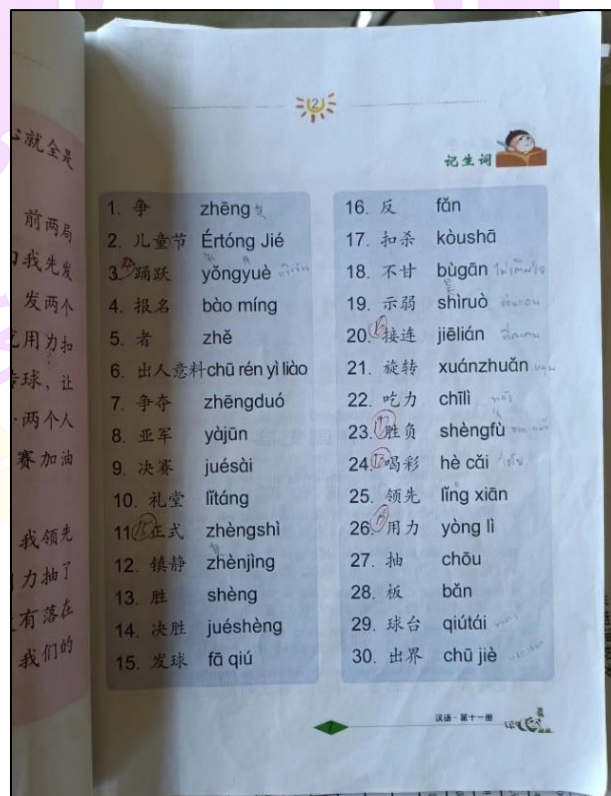 2
心就全是
前两局
我先发
发两个
用力扣
球，让
两个人
赛加油
我领先
力抽了
有落在
我们的
记生词
1. 争 zhēng
2. 儿童节 Értóng Jié
3. 踊跃 yǒngyuè
4. 报名 bào míng
5. 者 zhě
6. 出人意料 chū rén yì liào
7. 争夺 zhēngduó
8. 亚军 yàjūn
9. 决赛 juésài
10. 礼堂 lǐtáng
11. 正式 zhèngshì
12. 镇静 zhènjìng
13. 胜 shèng
14. 决胜 juéshèng
15. 发球 fā qiú
16. 反 fǎn
17. 扣杀 kòushā
18. 不甘 bùgān
19. 示弱 shìruò
20. 接连 jiēlián
21. 旋转 xuánzhuǎn
22. 吃力 chīlì
23. 胜负 shèngfù
24. 喝彩 hè cǎi
25. 领先 lǐng xiān
26. 用力 yòng lì
27. 抽 chōu
28. 板 bǎn
29. 球台 qiútái
30. 出界 chū jiè
7
汉语·第十一册